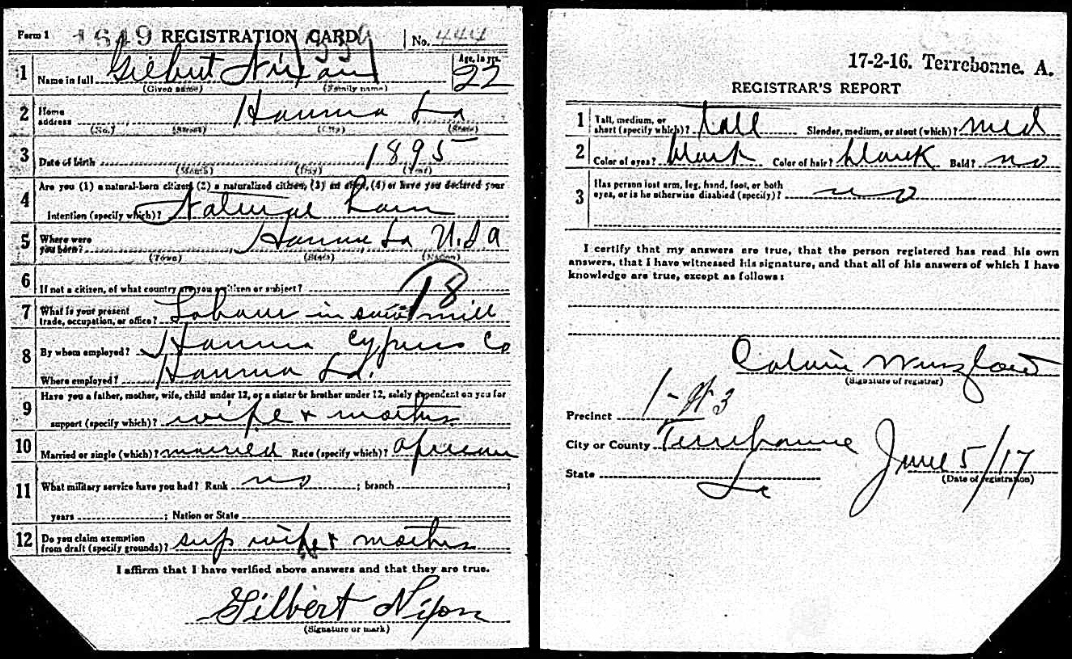 Form 1 1649 REGISTRATION CARD 1339 No. 444
1 Name in full Gilbert Nixon Age, in yrs. 22
(Given name) (Family name)
2 Home address Houma La
(No.) (Street) (City) (State)
3 Date of birth 1895
(Month) (Day) (Year)
4 Are you (1) a natural-born citizen, (2) a naturalized citizen, (3) an alien, (4) or have you declared your
intention (specify which)? Natural born
5 Where were you born? Houma La USA
(Town) (State) (Nation)
6 If not a citizen, of what country are you a citizen or subject?
18
7 What is your present trade, occupation, or office? Laborer in saw mill
8 By whom employed? Houma Cypress Co
Where employed? Houma La.
9 Have you a father, mother, wife, child under 12, or a sister or brother under 12, solely dependent on you for
support (specify which)? wife + mother
10 Married or single (which)? married Race (specify which)?
11 What military service have you had? Rank no ; branch ;
years ; Nation or State
12 Do you claim exemption from draft (specify grounds)? sup wife + mother
I affirm that I have verified above answers and that they are true.
Gilbert Nixon
(Signature or mark)
17-2-16. Terrebonne. A.
REGISTRAR'S REPORT
1 Tall, medium, or short (specify which)? tall Slender, medium, or stout (which)? med
2 Color of eyes? black Color of hair? black Bald? no
3 Has person lost arm, leg, hand, foot, or both
eyes, or is he otherwise disabled (specify)? no
I certify that my answers are true, that the person registered has read his own
answers, that I have witnessed his signature, and that all of his answers of which I have
knowledge are true, except as follows:
Calvin Wurzlow
(Signature of registrar)
Precinct 1-W3
City or County Terrebonne
State La
June 5/17
(Date of registration)